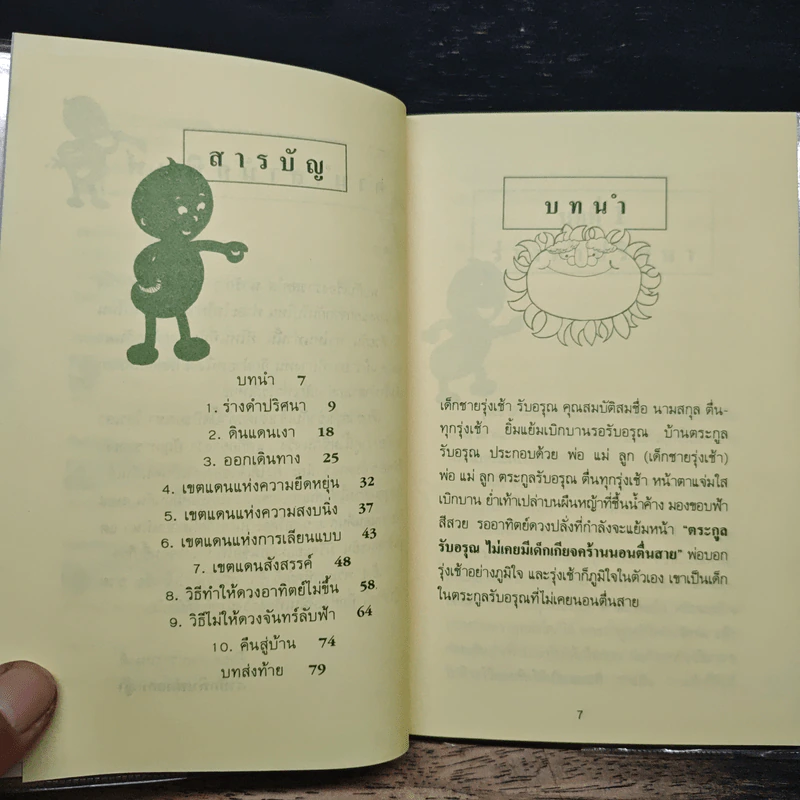 สารบัญ
บทนำ 7
1. ร่างดำปริศนา 9
2. ดินแดนเงา 18
3. ออกเดินทาง 25
4. เขตแดนแห่งความยืดหยุ่น 32
5. เขตแดนแห่งความสงบนิ่ง 37
6. เขตแดนแห่งการเลียนแบบ 43
7. เขตแดนสังสรรค์ 48
8. วิธีทำให้ดวงอาทิตย์ไม่ขึ้น 58
9. วิธีไม่ให้ดวงจันทร์ลับฟ้า 64
10. คืนสู่บ้าน 74
บทส่งท้าย 79
บทนำ
เด็กชายรุ่งเช้า รับอรุณ คุณสมบัติสมชื่อ นามสกุล ตื่น-
ทุกรุ่งเช้า ยิ้มแย้มเบิกบานรอรับอรุณ บ้านตระกูล
รับอรุณ ประกอบด้วย พ่อ แม่ ลูก (เด็กชายรุ่งเช้า)
พ่อ แม่ ลูก ตระกูลรับอรุณ ตื่นทุกรุ่งเช้า หน้าตาแจ่มใส
เบิกบาน ย่ำเท้าเปล่าบนผืนหญ้าที่ชื้นน้ำค้าง มองขอบฟ้า
สีสวย รออาทิตย์ดวงปลั่งที่กำลังจะแย้มหน้า "ตระกูล
รับอรุณ ไม่เคยมีเด็กเกียจคร้านนอนตื่นสาย" พ่อบอก
รุ่งเช้าอย่างภูมิใจ และรุ่งเช้าก็ภูมิใจในตัวเอง เขาเป็นเด็ก
ในตระกูลรับอรุณที่ไม่เคยนอนตื่นสาย
7